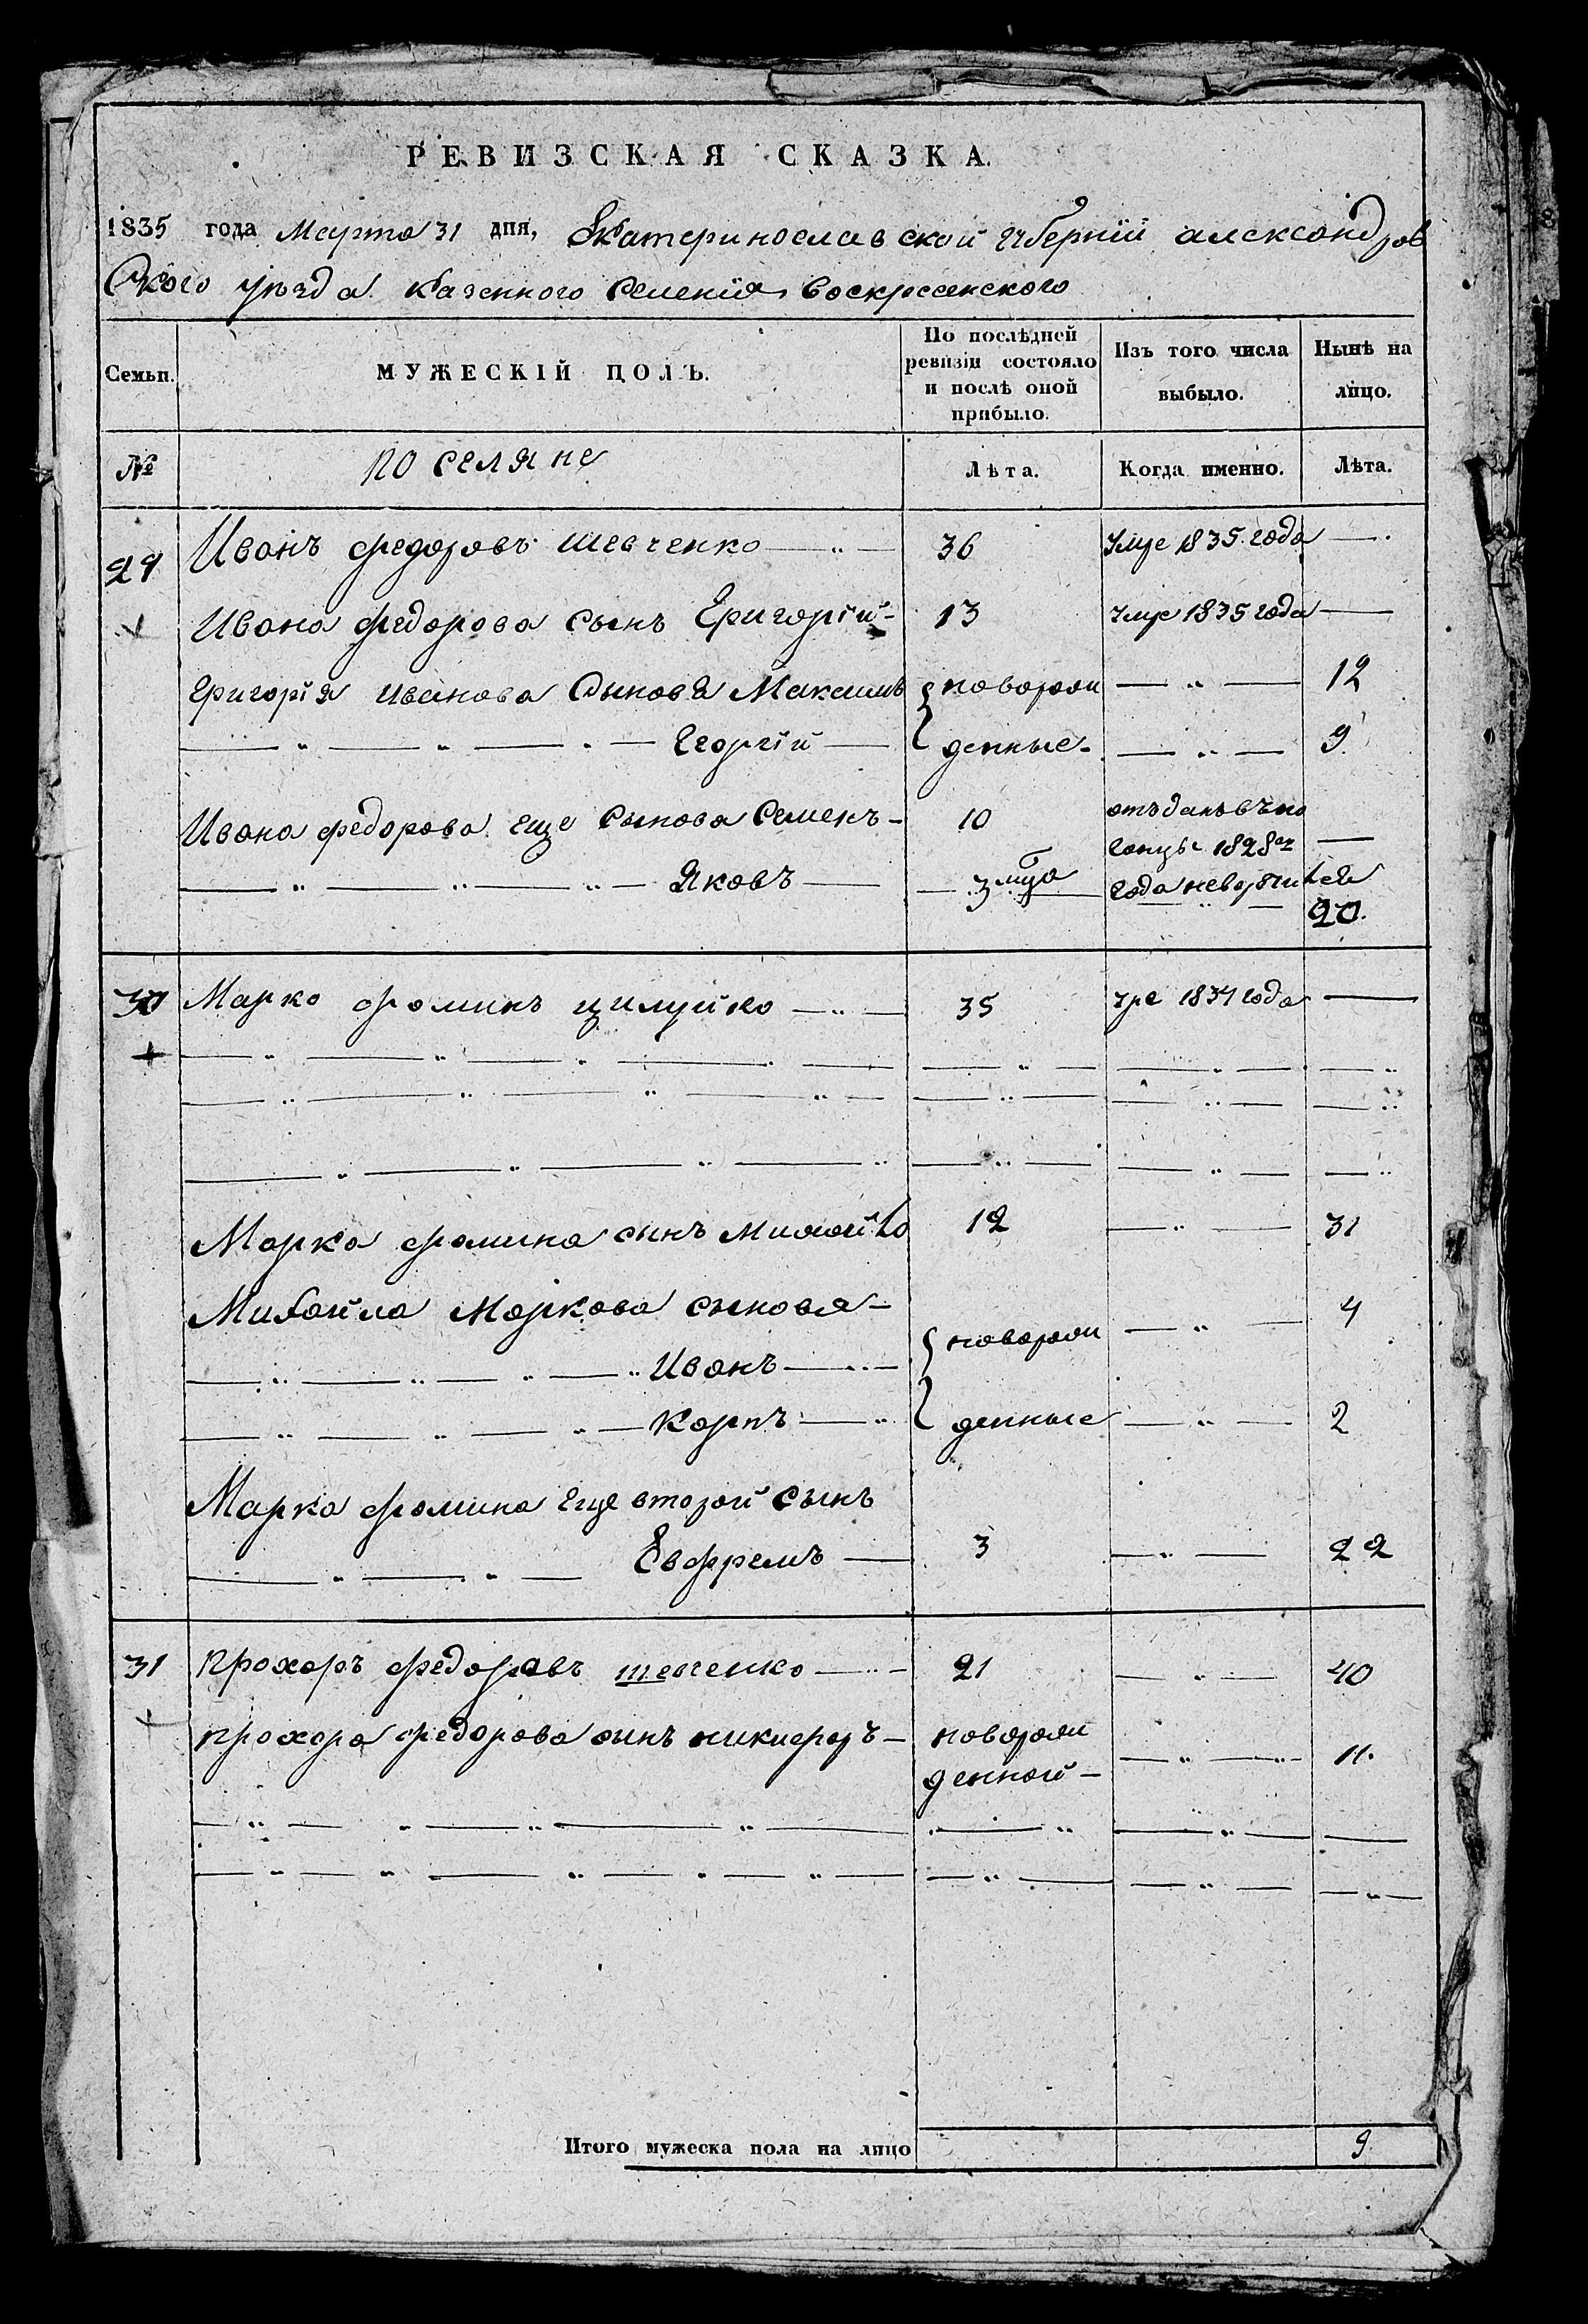 РЕВИЗСКАЯ СКАЗКА.
1835 года Марта 31 дня, Екатеринославской губернїи александров
Ского уѣзда казенного Селенїя Воскресенского
Семьи. МУЖЕСКІЙ ПОЛЪ. По послѣдней ревизіи состояло и послѣ оной прибыло. Изъ того числа выбыло. Нынѣ на лицо.
№ поселяне Лѣта. Когда именно. Лѣта.
29 Иванъ федоровъ шевченко 36 Умре 1835. года
Ивана федорова сынъ Григорїй 13 умре 1835 года
Григорїя иванова Сыновя Максимъ новорож 12
Георгїй денные 9
Ивана федорова еще сынова Семенъ 10 отъданъ въ по
гонцы 1828го
Яковъ 3 мца года
20.
30 Марко фоминъ цилуйко 35 уре 1834 года
Марка фомина сынъ Михайло 12 31
Михайла Маркова сыновя 4
Иванъ новорож
Карпъ денные 2
Марка фомина еще второй сынъ
Евфремъ 3 22
31 Прохоръ федоровъ шевченко 21 40
прохора федорова сынъ никифоръ новорож 11.
денной
Итого мужеска пола на лицо 9